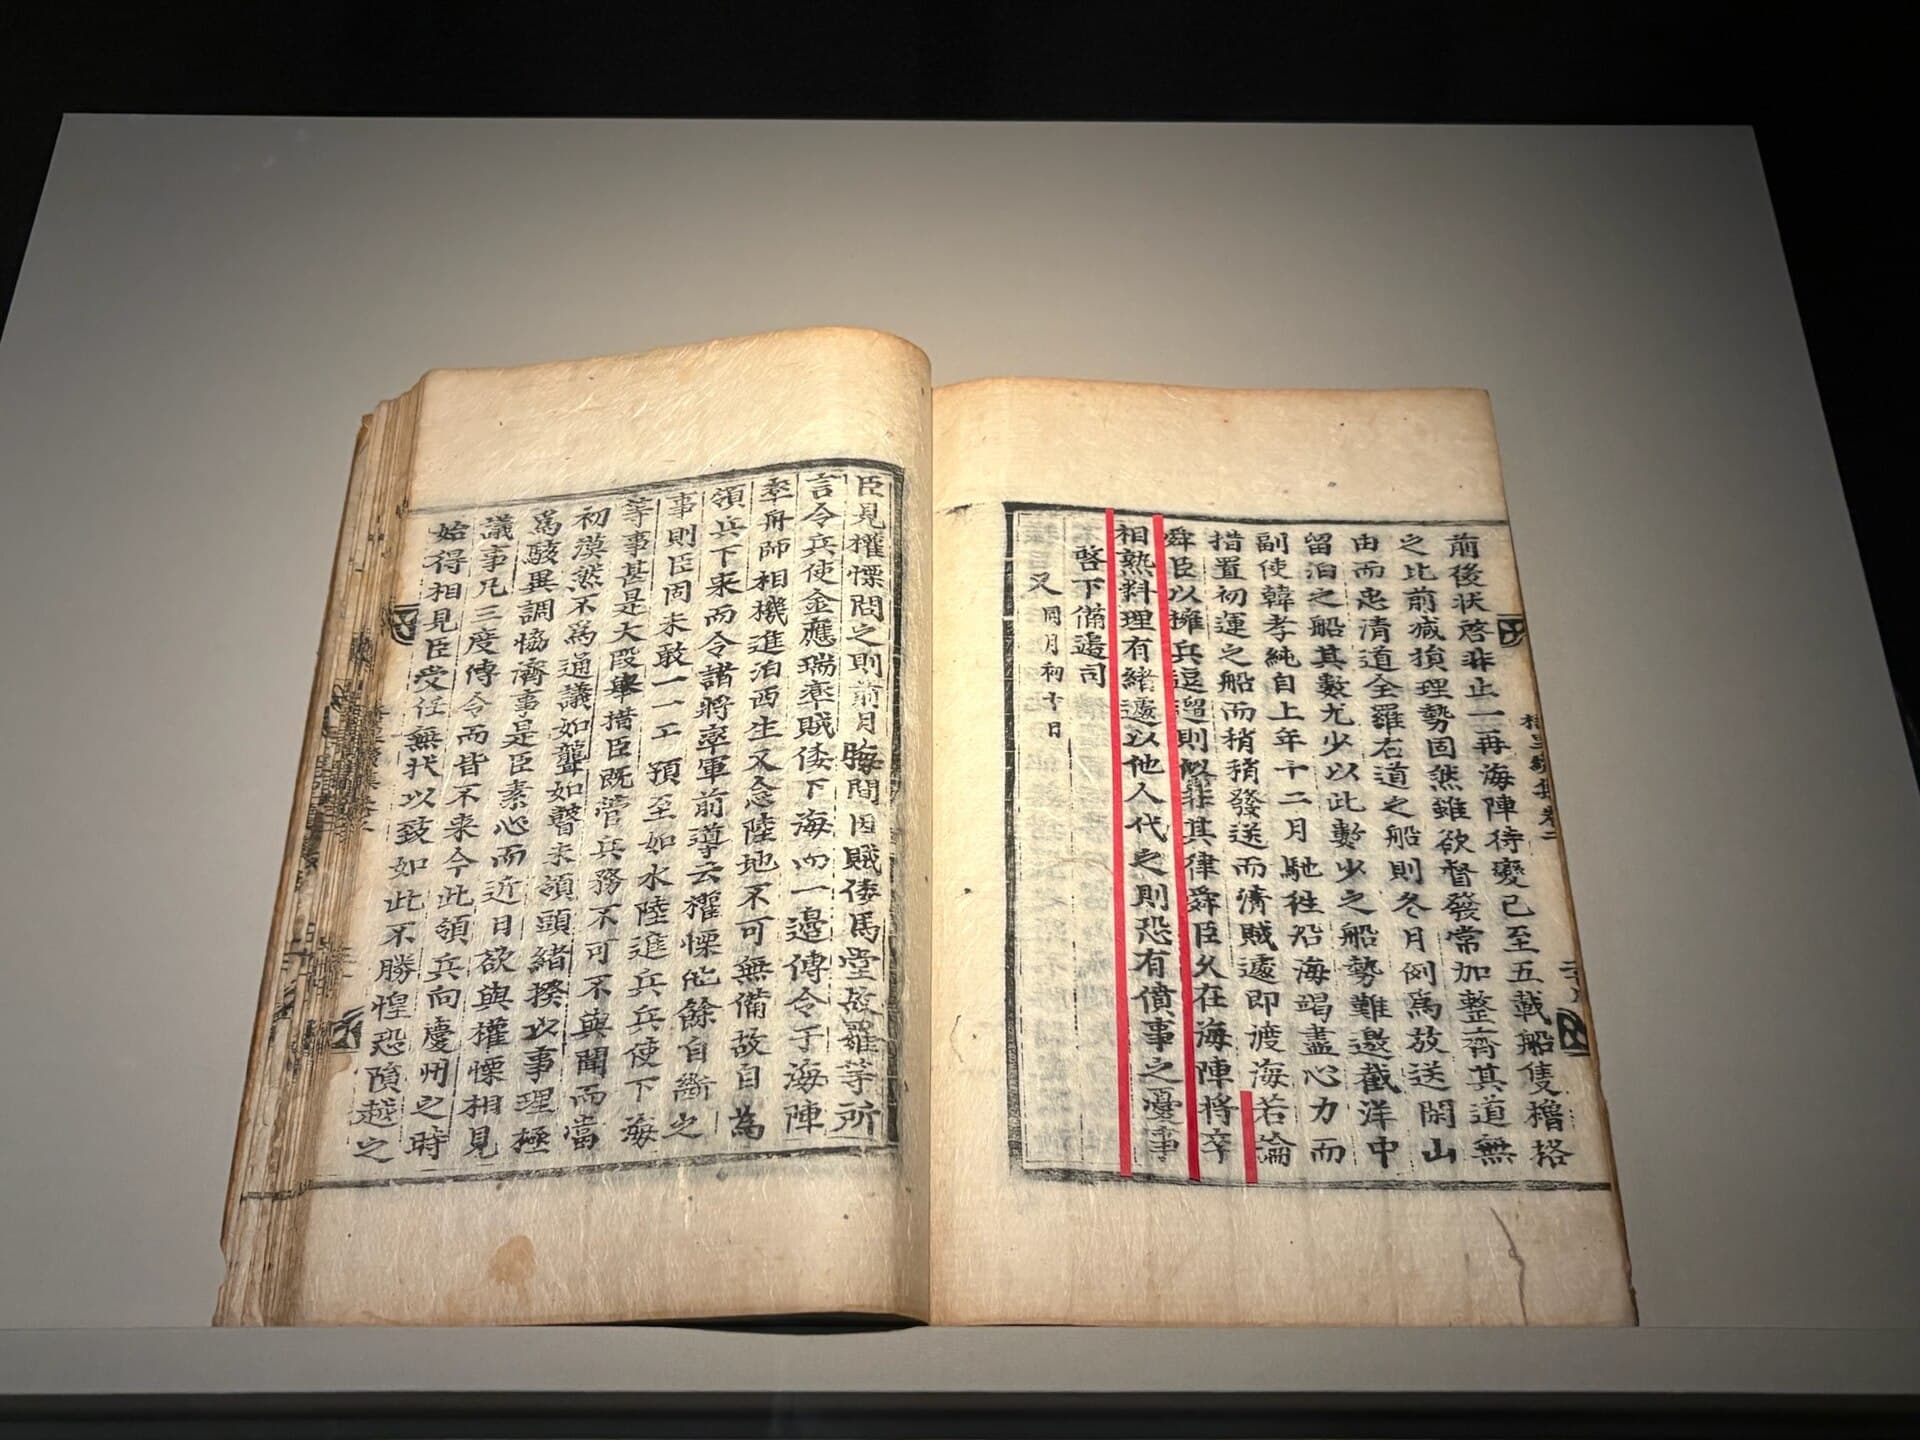 前後狀啓非止一再海陣待變已至五載船隻櫓格
之比前减損理勢固然雖欲督發常加整齊其道無
由而忠清道全羅右道之船則冬月例爲放送閑山
留泊之船其數尤少以此數少之船勢難邀截洋中
副使韓孝純自上年十二月馳徃沿海竭盡心力而
措置初運之船而稍稍發送而淸賊遽即渡海若論
舜臣以擁兵逗遛則似非其律舜臣久在海陣將卒
相熟料理有緖遽以他人代之則恐有僨事之憂事
啓下備邊司
又 同月初十日
臣見權慄問之則前月晦間因賊倭馬堂古羅等所
言令兵使金應瑞率賊倭下海而一邊傳令于海陣
率舟師相機進泊西生又念陸地不可無備故自爲
領兵下来而令諸將率軍前導云權慄他餘自斷之
事則臣固未敢一一工預至如水陸進兵兵使下海
等事甚是大段擧措臣既管兵務不可不與聞而當
初漠然不爲通議如聾如瞽未領頭緖揆以事理極
爲駭異調協濟事是臣素心而近日欲與權慄相見
議事凡三度傳令而皆不来今此領兵向慶州之時
始得相見臣受任無狀以致如此不勝惶恐隕越之